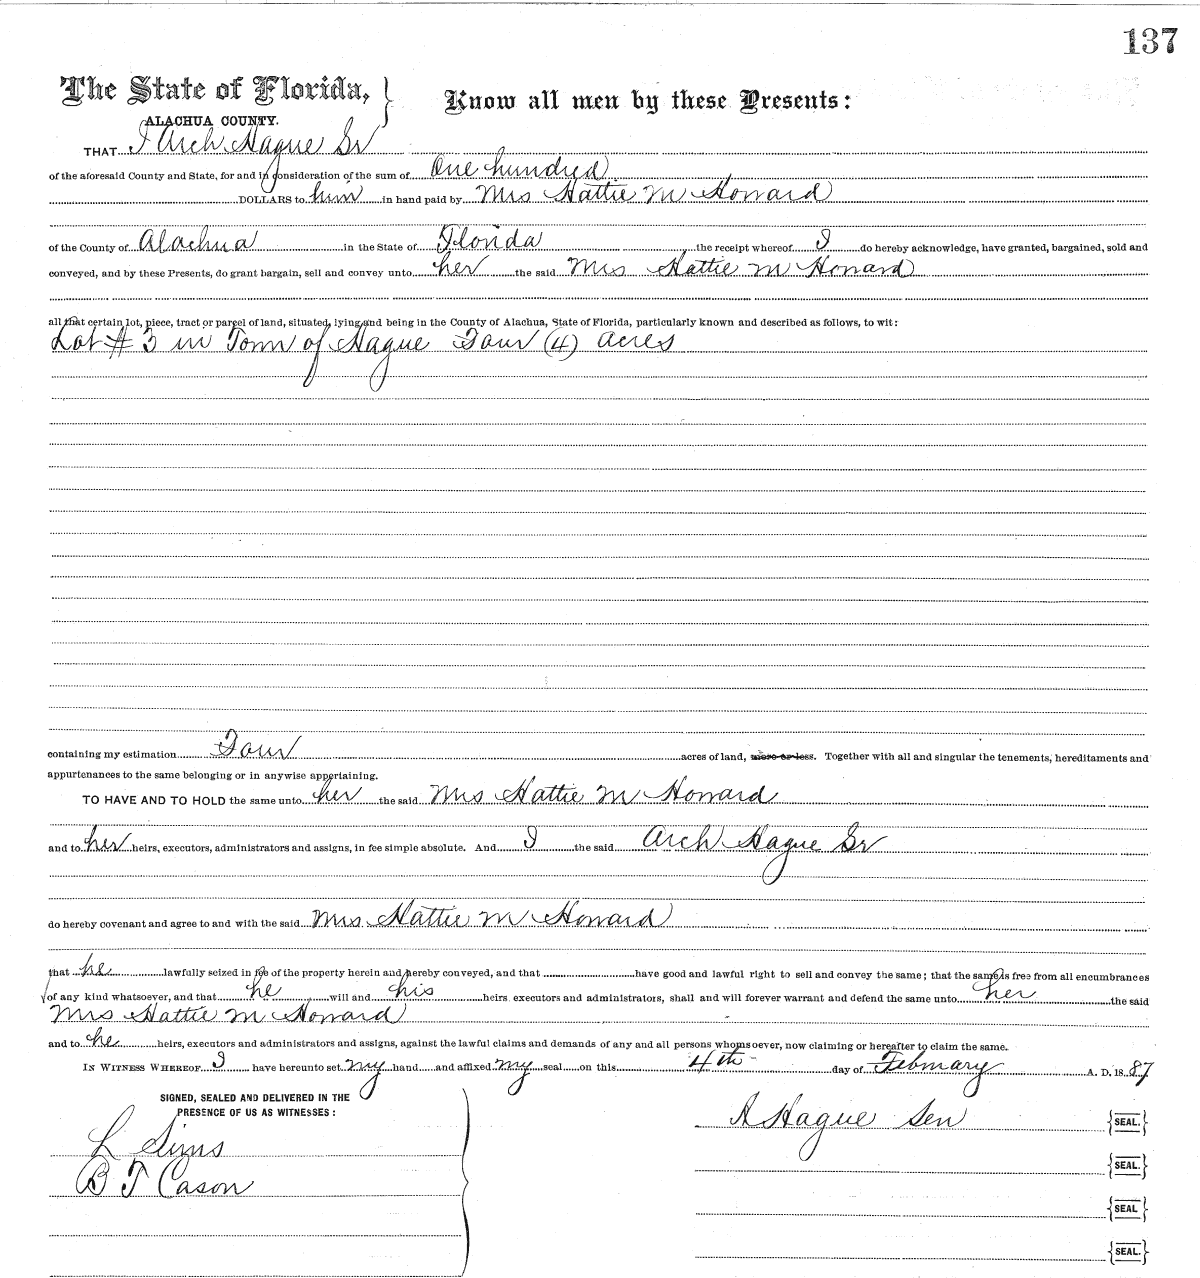 137
The State of Florida,
ALACHUA COUNTY.
Know all men by these Presents:
THAT I Arch Hague Sr
of the aforesaid County and State, for and in consideration of the sum of One hundred
DOLLARS to him in hand paid by Mrs Hattie M Howard
of the County of Alachua in the State of Florida the receipt whereof I do hereby acknowledge, have granted, bargained, sold and
conveyed, and by these Presents, do grant bargain, sell and convey unto her the said Mrs Hattie M Howard
all that certain lot, piece, tract or parcel of land, situated, lying and being in the County of Alachua, State of Florida, particularly known and described as follows, to wit:
Lot # 3 in Town of Hague Four (4) acres
containing my estimation Four acres of land, more or less. Together with all and singular the tenements, hereditaments and
appurtenances to the same belonging or in anywise appertaining.
TO HAVE AND TO HOLD the same unto her the said Mrs Hattie M Howard
and to her heirs, executors, administrators and assigns, in fee simple absolute. And I the said Arch Hague Sr
do hereby covenant and agree to and with the said Mrs Hattie M Howard
that he lawfully seized in fee of the property herein and hereby conveyed, and that he have good and lawful right to sell and convey the same; that the same is free from all encumbrances
of any kind whatsoever, and that he will and his heirs executors and administrators, shall and will forever warrant and defend the same unto her the said
Mrs Hattie M Howard
and to he heirs, executors and administrators and assigns, against the lawful claims and demands of any and all persons whomsoever, now claiming or hereafter to claim the same.
IN WITNESS WHEREOF I have hereunto set my hand and affixed my seal on this 4th day of February A. D. 1887
SIGNED, SEALED AND DELIVERED IN THE
PRESENCE OF US AS WITNESSES:
L Sims
B T Cason
A Hague Sen {SEAL.}
{SEAL.}
{SEAL}
{SEAL.}